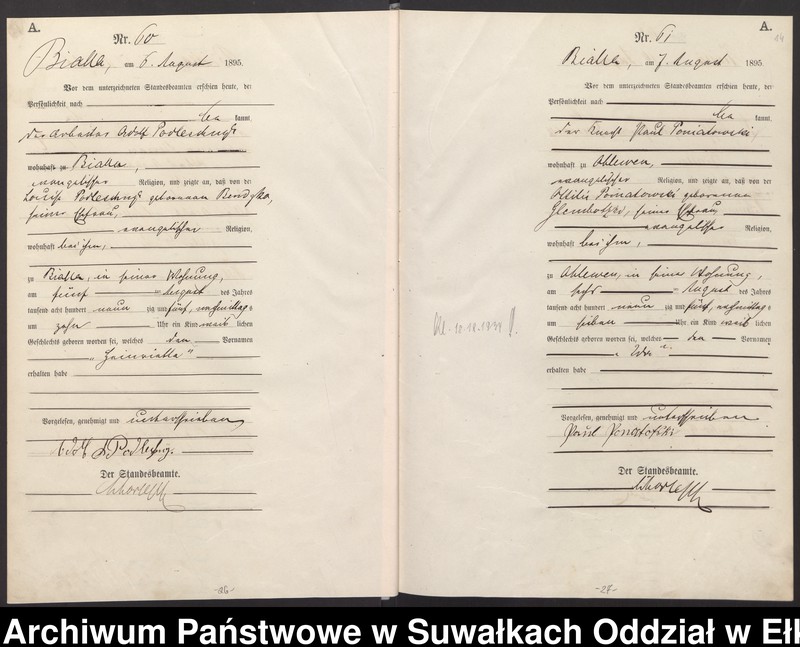 A.
Nr. 60
Bialla, am 6. August 1895.
Vor dem unterzeichneten Standesbeamten erschien heute, der
Persönlichkeit nach
be kannt
der Arbeiter Adolf
wohnhaft zu Bialla,
evangelischer Religion, und zeigte an, daß von der
Louise geborenen
seiner Ehefrau,
evangelischer Religion,
wohnhaft bei ihm,
zu Bialla, in seiner Wohnung,
am fünf ten August des Jahres
tausend acht hundert neun zig und fünf, vormittags
um zehn Uhr ein Kind weib lichen
Geschlechts geboren worden sei, welches den Vornamen
„Heinriette"
erhalten habe
Vorgelesen, genehmigt und unterschrieben
Adolf
Der Standesbeamte.
-26-
A.
14
Nr. 61
Bialla, am 7. August 1895
Vor dem unterzeichneten Standesbeamten erschien heute, der
Persönlichkeit nach
be kannt
der Knecht Paul Poniatowski
wohnhaft zu Oblewen,
evangelischer Religion, und zeigte an, daß von der
Ottilie Poniatowski geborenen
seiner Ehefrau
evangelischer Religion,
wohnhaft bei ihm,
zu Oblewen, in seiner Wohnung,
am sechs ten August des Jahres
tausend acht hundert neun zig und fünf, nachmittags
um sieben Uhr ein Kind weib lichen
Geschlechts geboren worden sei, welches den Vornamen
erhalten habe
Vorgelesen, genehmigt und unterschrieben
Paul
Der Standesbeamte.
-27-
Archiwum Państwowe w Suwałkach Oddział w Ełk